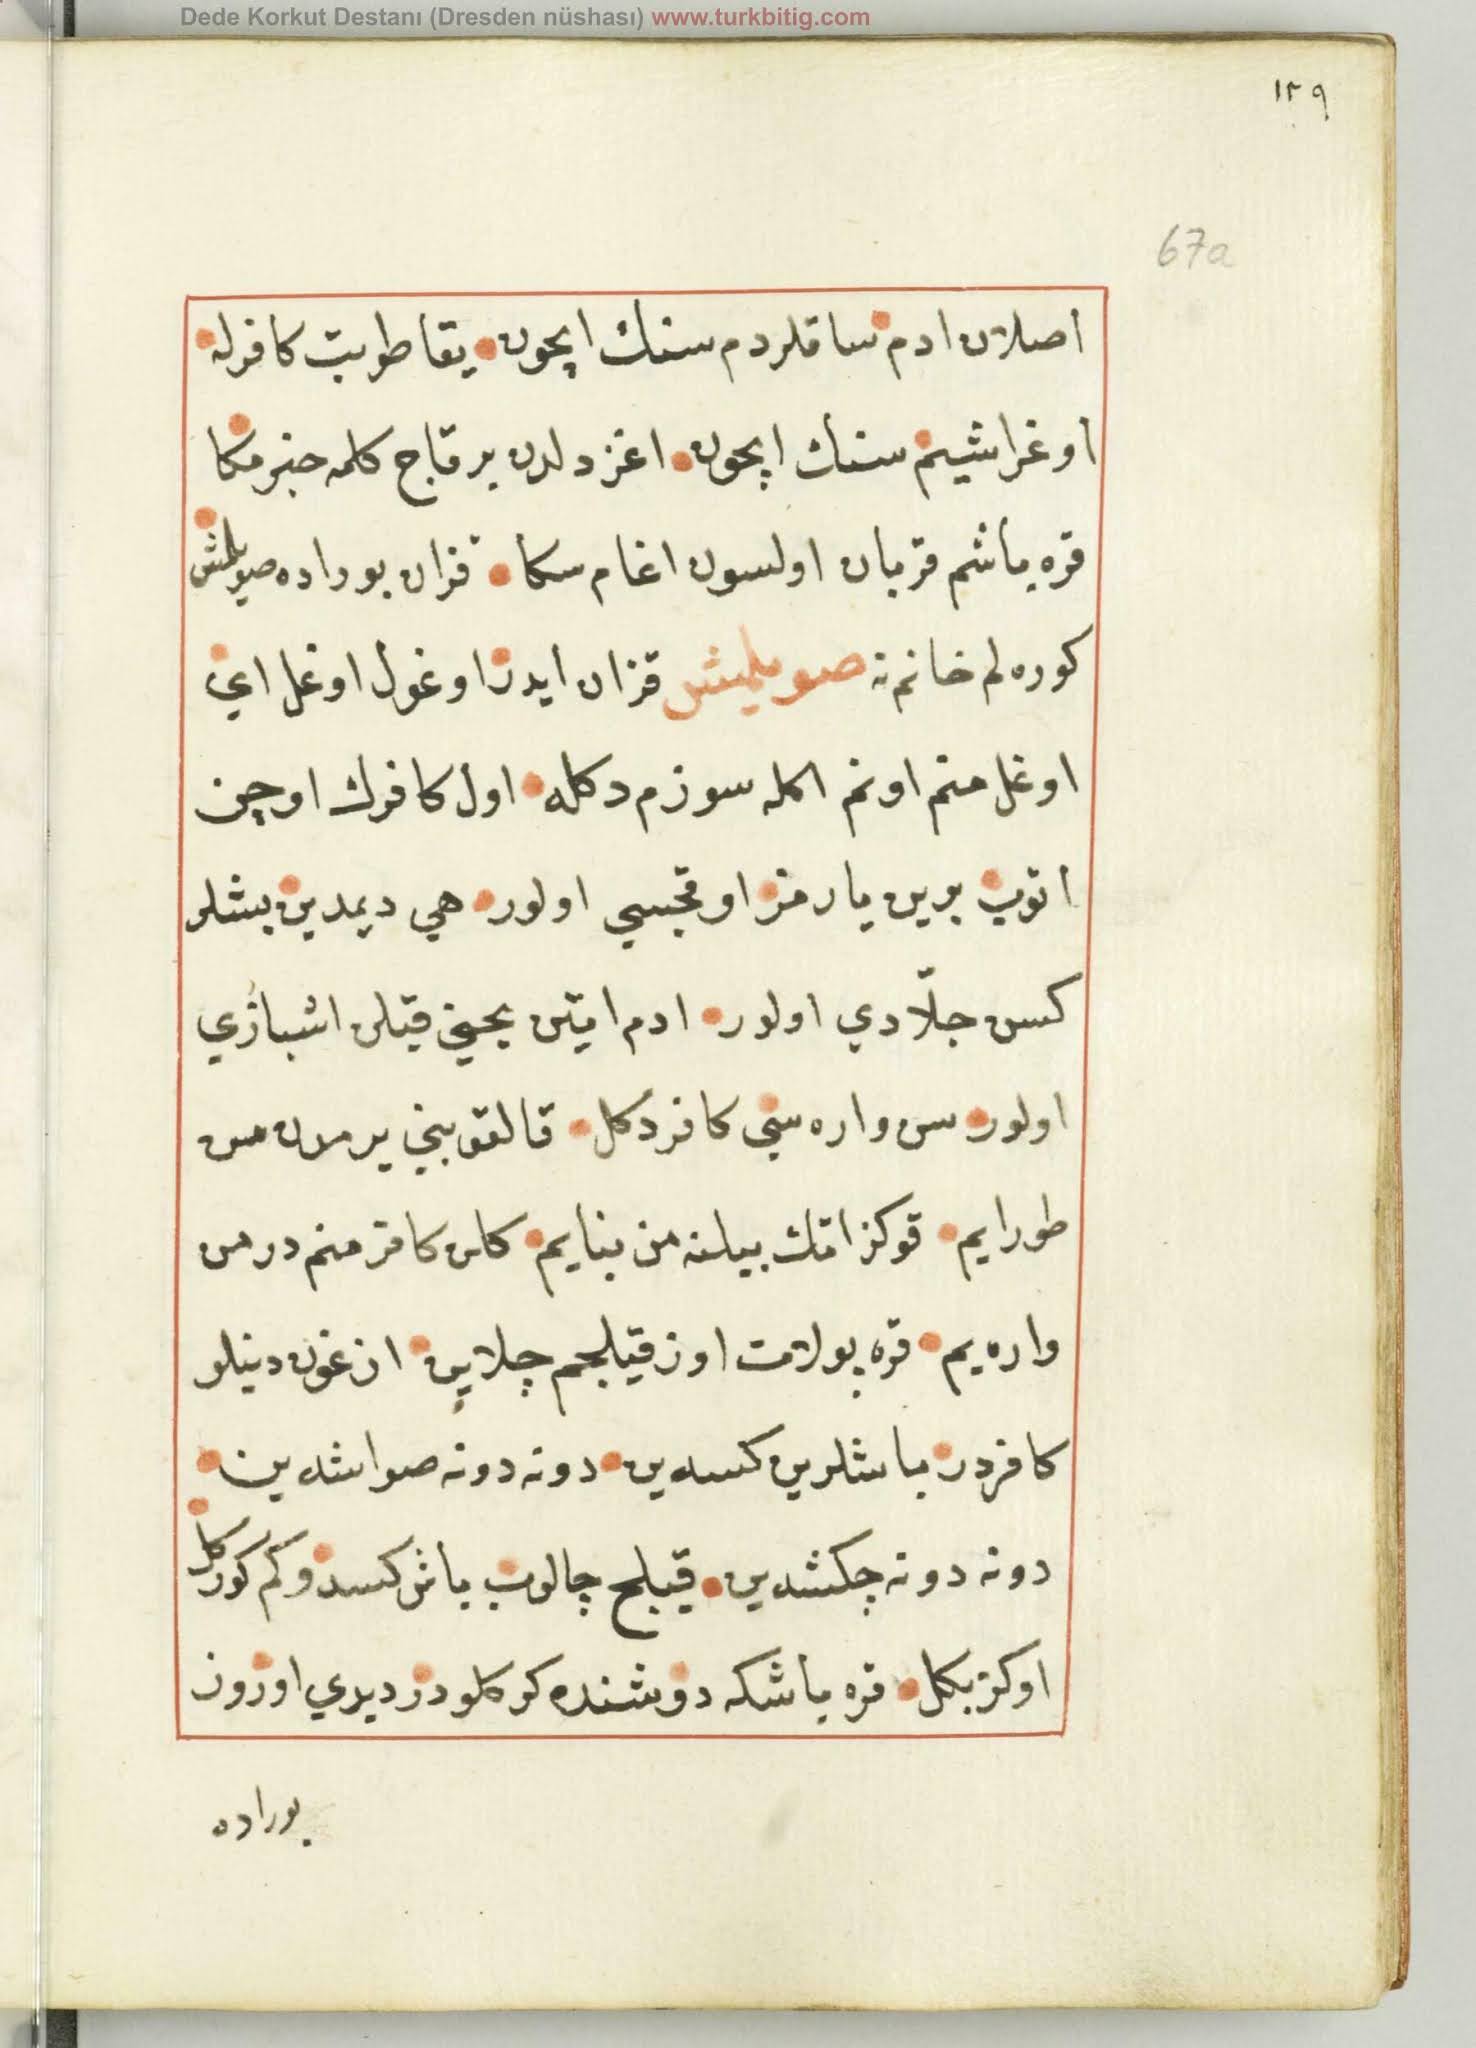 Dede Korkut Destanı (Dresden nüshası) www.turkbitig.com
١٢٩
67a
اصلان ادم ساقلردم سنك ايچون يقا طوتب كافرله
اوغراشيم سنك ايچون اغز دلدن بر قاچ كلمه خبر مكا
قره باشم قربان اولسون اغام سكا قزان بوراده صويلمش
كوره لم خانم نه صويلمش قزان ايدر اوغول اوغل اي
اوغل منم اونم اكله سوزم دكله اول كافرك اوچين
اتوب برين يارمز اوقجيسي اولور هي ديمدين بشلر
كسن جلّادي اولور ادم اتين يخني قيلن اشبازي
اولور سن واره سني كافر دكل قالقوبني يرمدن من
طورايم قوكز اتك بيلنه من بنايم كلن كافر منم در من
واره يم قره پولات اوز قيلجم چلاين ازغون دينلو
كافردر باشلرين كسه ين دونه دونه صواشه ين
دونه دونه چكشه ين قيلج چالوب باش كسدوكم كوركل
اوكرنكل قره باشكه دوشنده كركلودر ديدي اوروز
بوراده